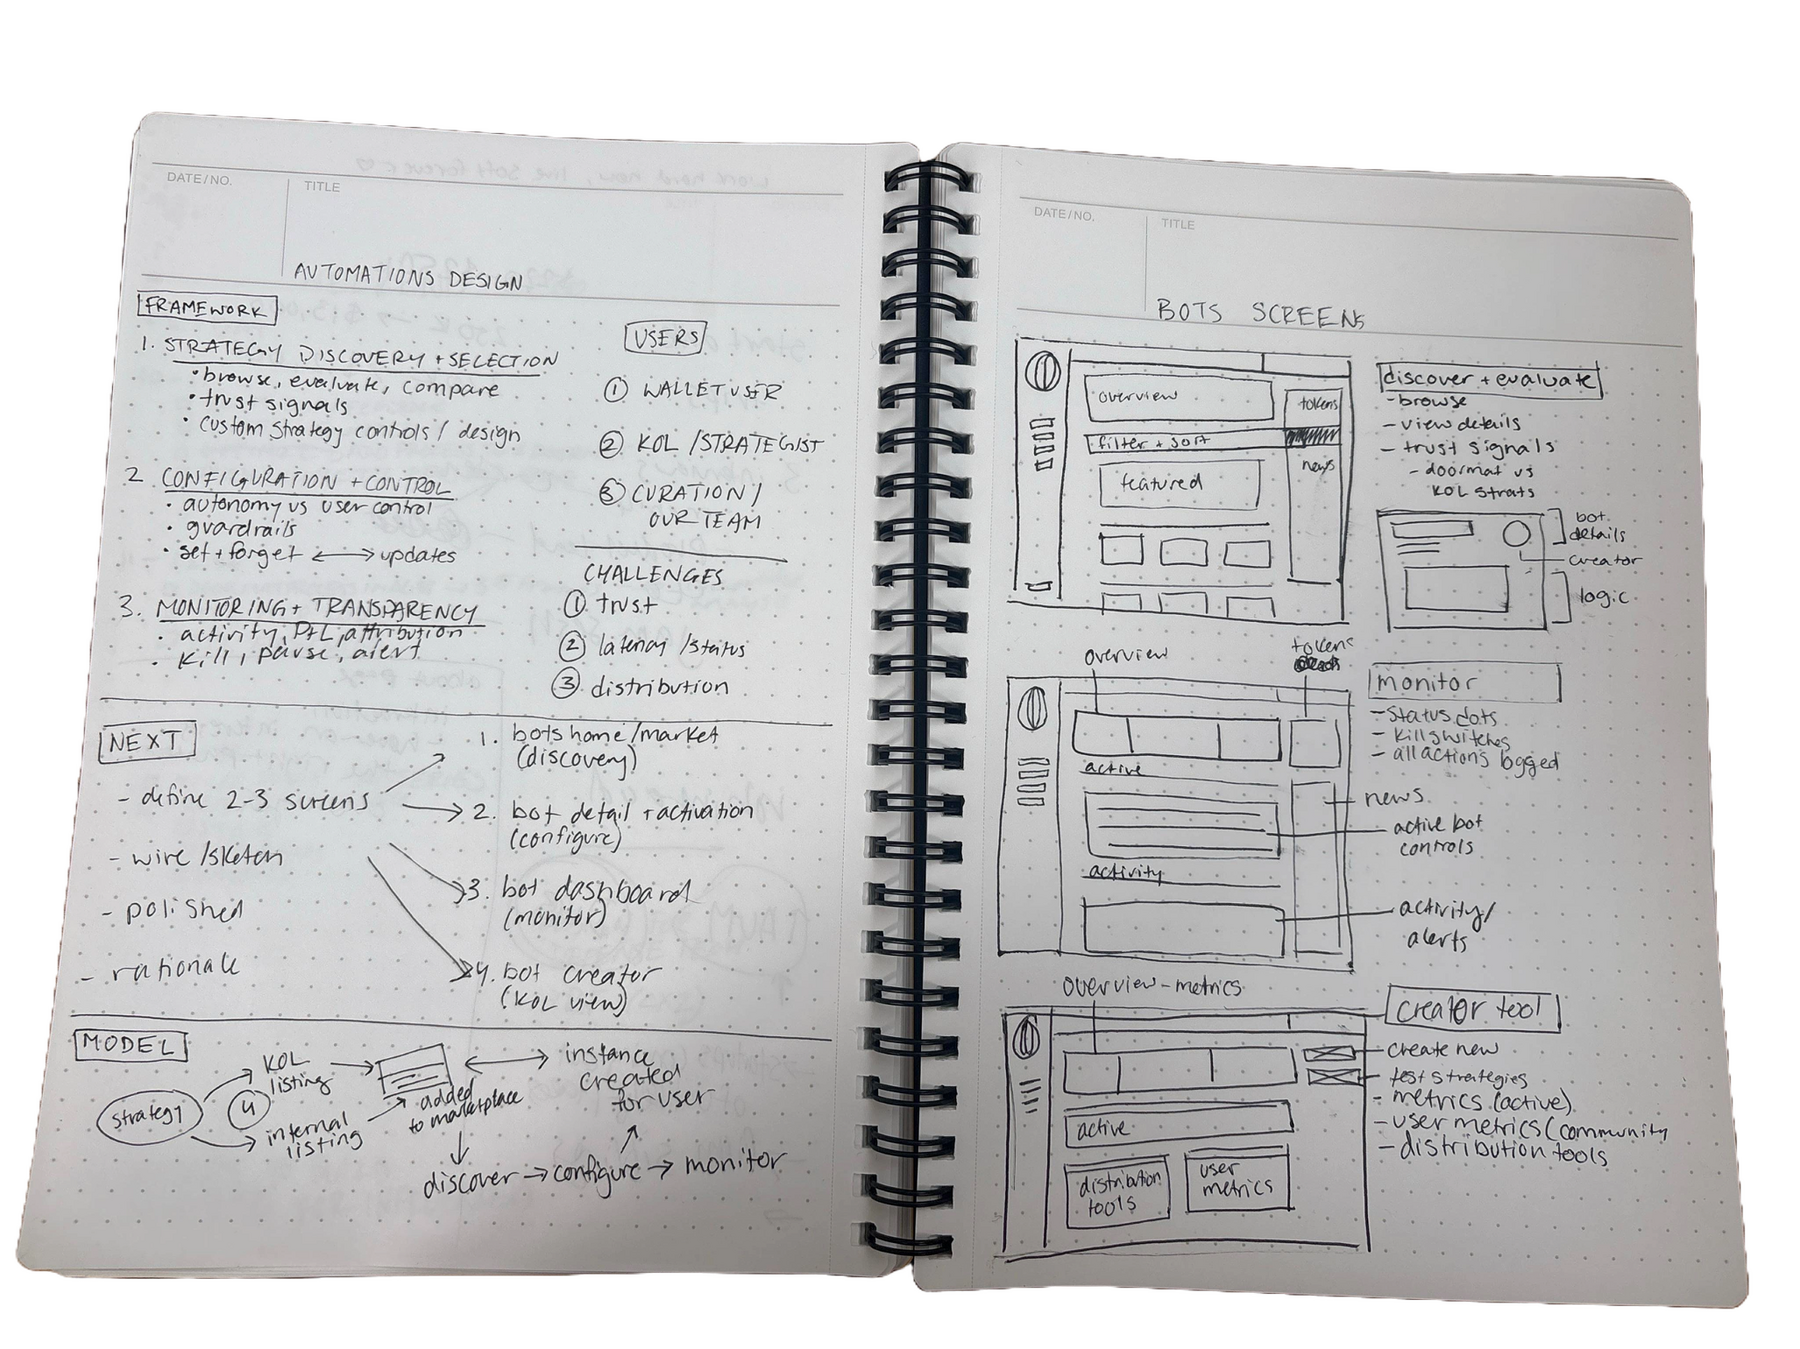 DATE/NO.
TITLE
AUTOMATIONS DESIGN
FRAMEWORK
1. STRATEGY DISCOVERY + SELECTION
• browse, evaluate, compare
• trust signals
• custom strategy controls / design
2 CONFIGURATION + CONTROL
• autonomy vs user control
• guardrails
• set + forget ⟷ updates
3. MONITORING + TRANSPARENCY
• activity, P+L, attribution
• kill, pause, alert
USERS
① WALLET USER
② KOL / STRATEGIST
③ CURATION /
OUR TEAM
CHALLENGES
① trust
② latency / status
③ distribution
NEXT
- define 2-3 screens
- wire / sketch
- polished
- rationale
1. bots home / market
(discovery)
2. bot detail + activation
(configure)
3. bot dashboard
(monitor)
4. bot creator
(KOL view)
MODEL
strategy
KOL
listing
4
internal
listing
added
to marketplace
instance
created
for user
discover → configure → monitor
DATE/NO.
TITLE
BOTS SCREENS
overview
filter + sort
featured
tokens
news
discover + evaluate
- browse
- view details
- trust signals
- doormat vs
KOL strats
bot
details
creator
logic
overview
tokens
active
activity
monitor
- status dots
- killswitches
- all actions logged
news
active bot
controls
activity/
alerts
overview - metrics
active
distribution
tools
user
metrics
creator tool
create new
test strategies
- metrics (active)
- user metrics (community
- distribution tools